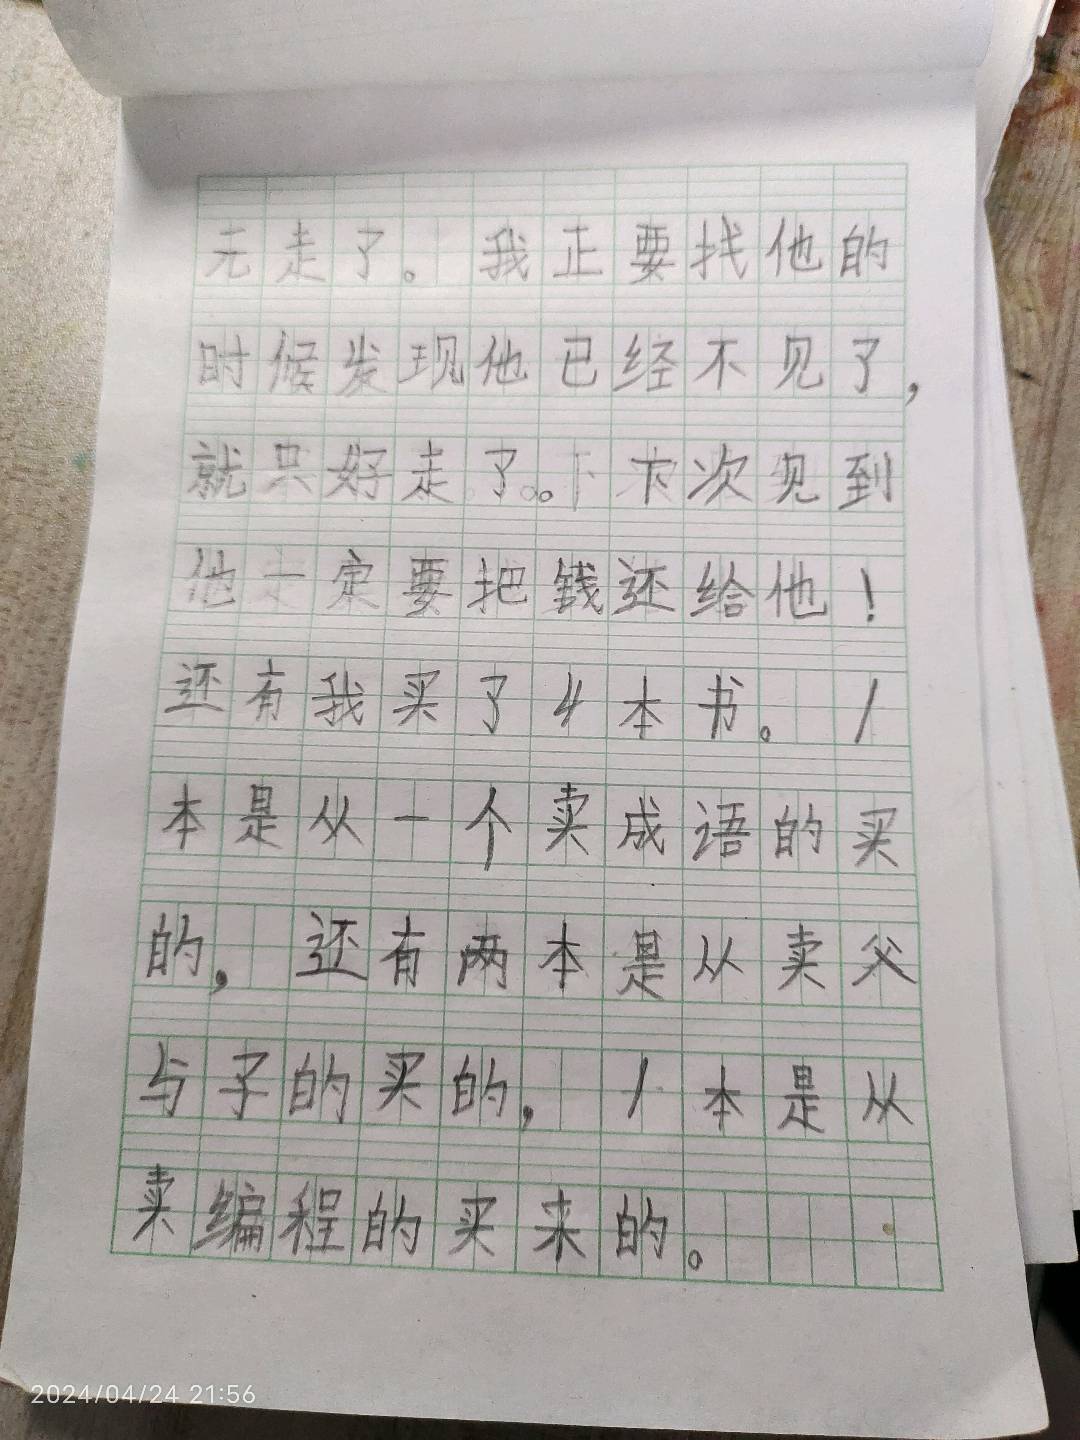 无走了。我正要找他的
时候发现他已经不见了,
就只好走了。下次见到
他一定要把钱还给他!
还有我买了4本书。1
本是从一个卖成语的买
的,还有两本是从卖父
与子的买的,1本是从
卖编程的买来的。
2024/04/24 21:56